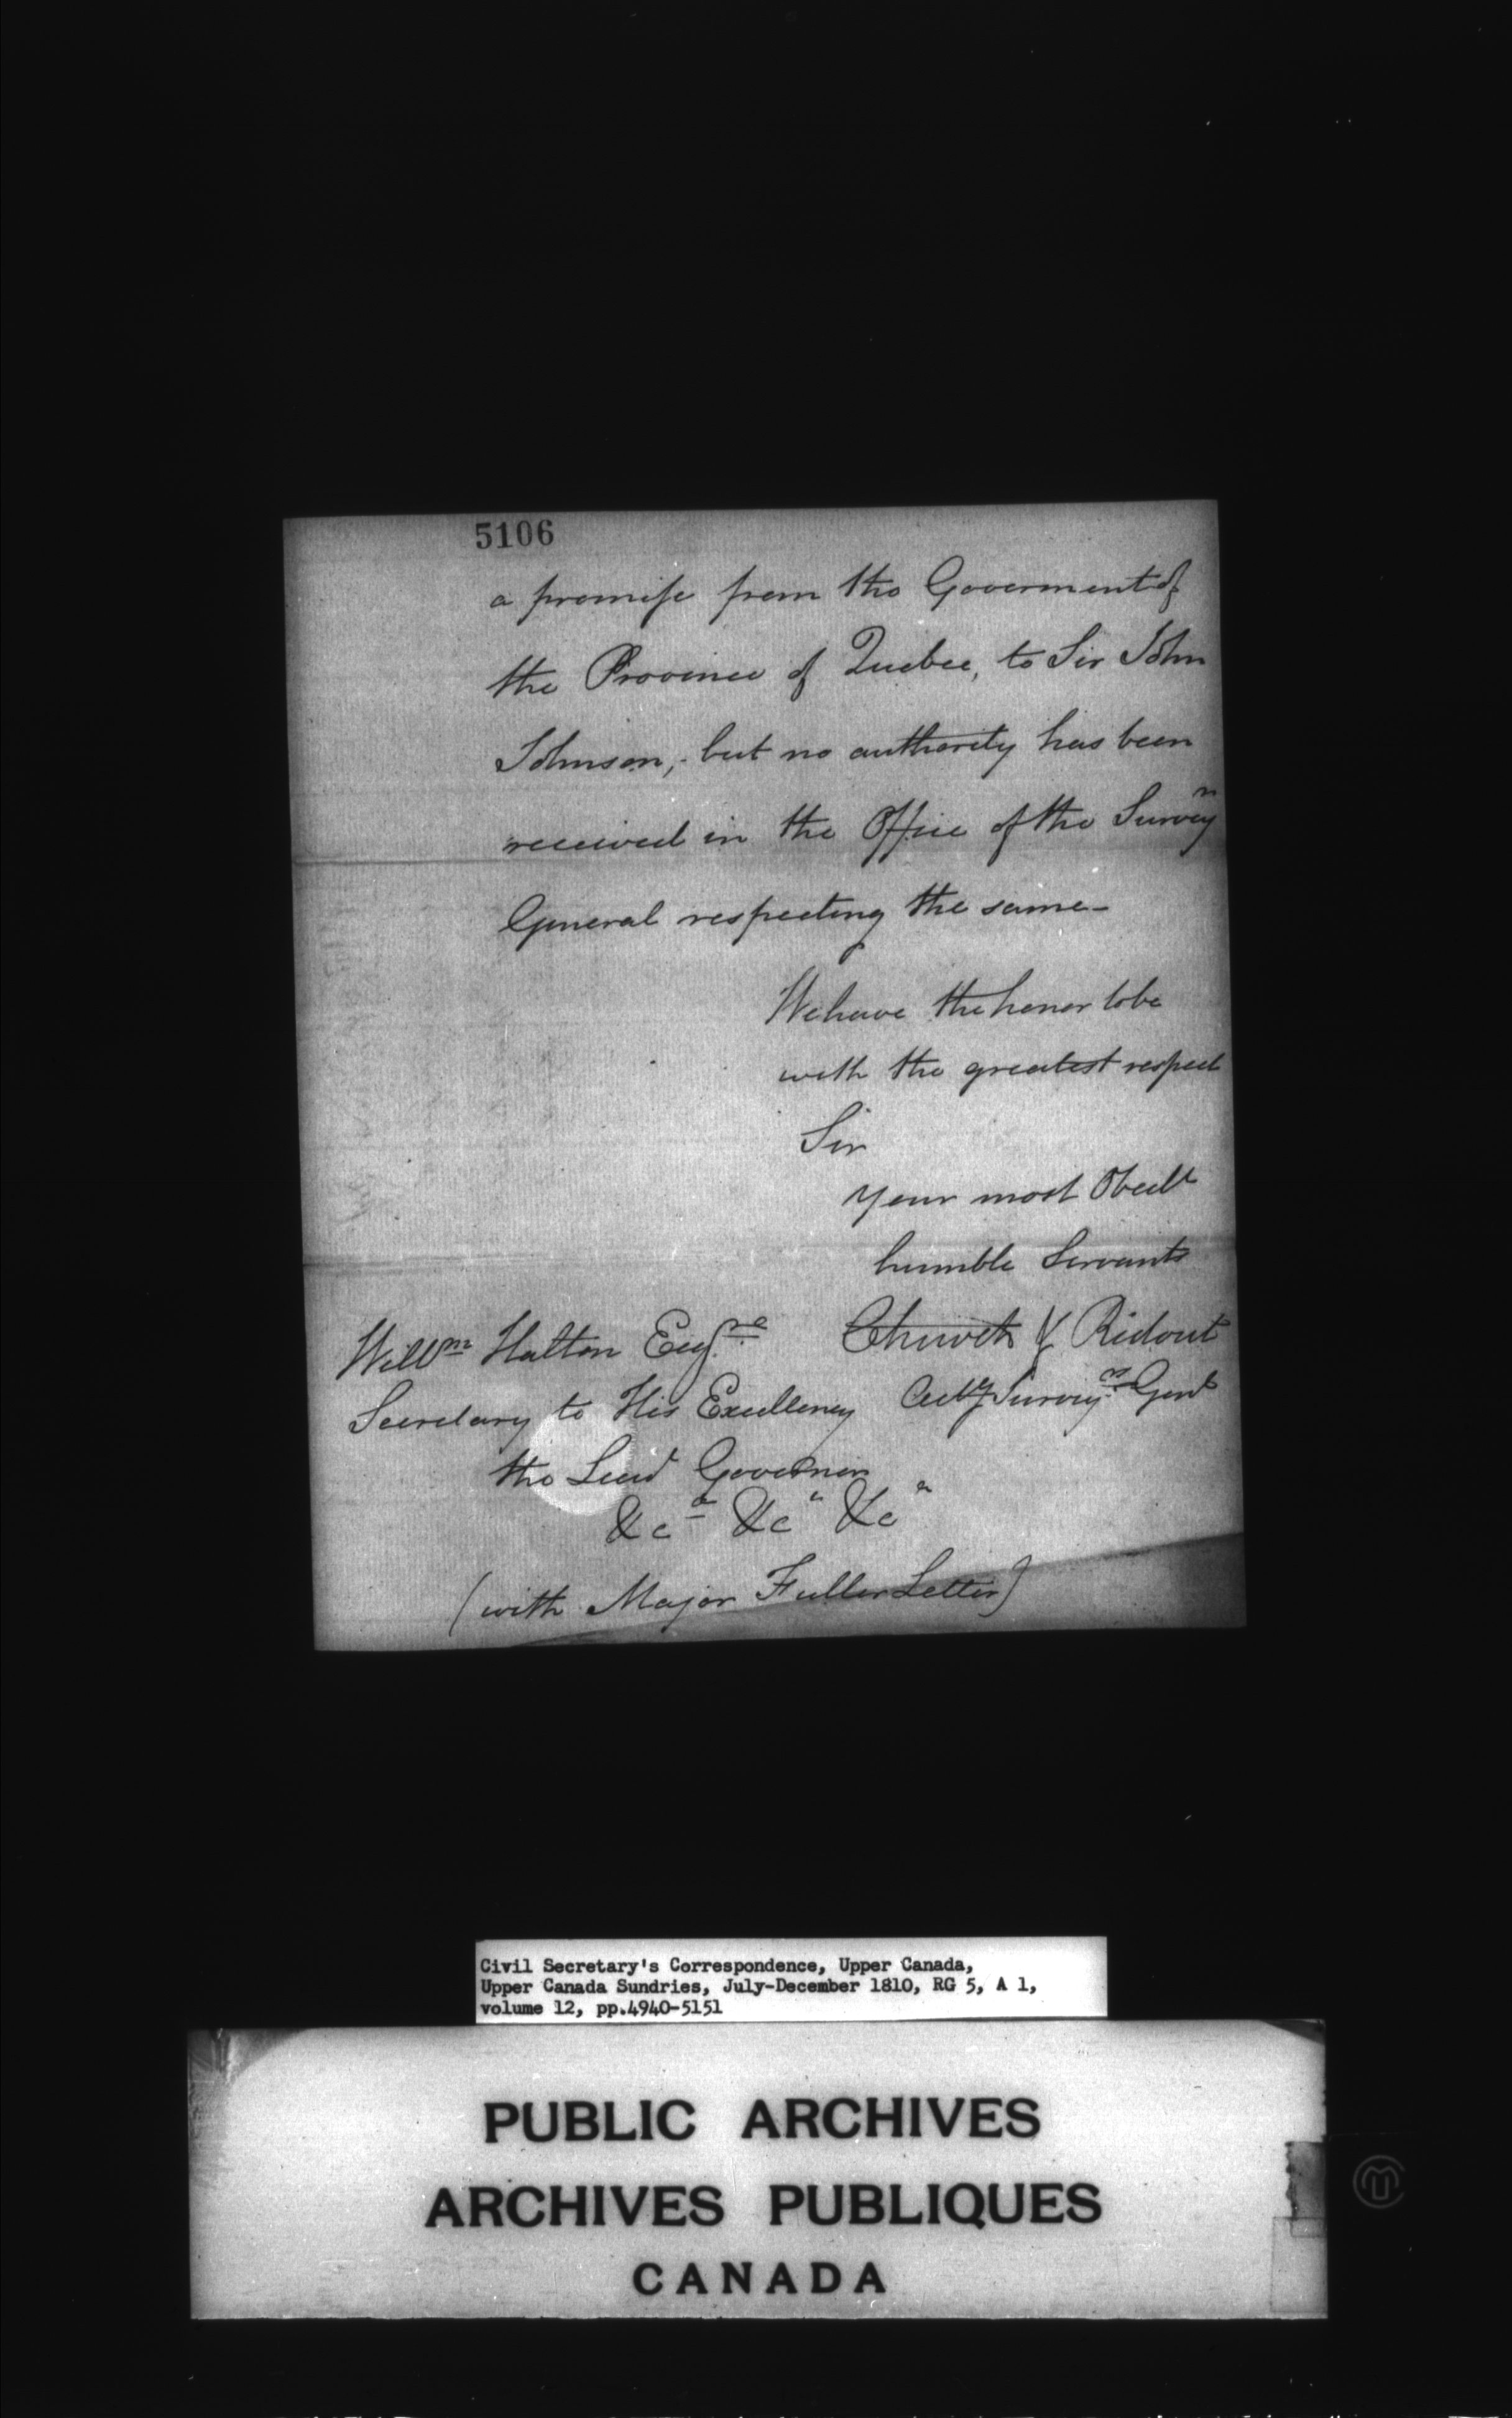 5106
a promise from the Goverment of
the Province of Quebec, to Sir John
Johnson, but no authority has been
received in the Office of the Survey^r
General respecting the same-
We have the honor to be
with the greatest respect
Sir
your most Obedt
humble Servants
Will^m Halton Esq^re Chewett & Ridout
Secretary to His Excellency Act^g Survey^rs Genl
the Lieut Governor
&c^a &c^a &c^a
(with Major Fuller Letter)
Civil Secretary's Correspondence, Upper Canada,
Upper Canada Sundries, July-December 1810, RG 5, A 1,
volume 12, pp.4940-5151
PUBLIC ARCHIVES
ARCHIVES PUBLIQUES
CANADA